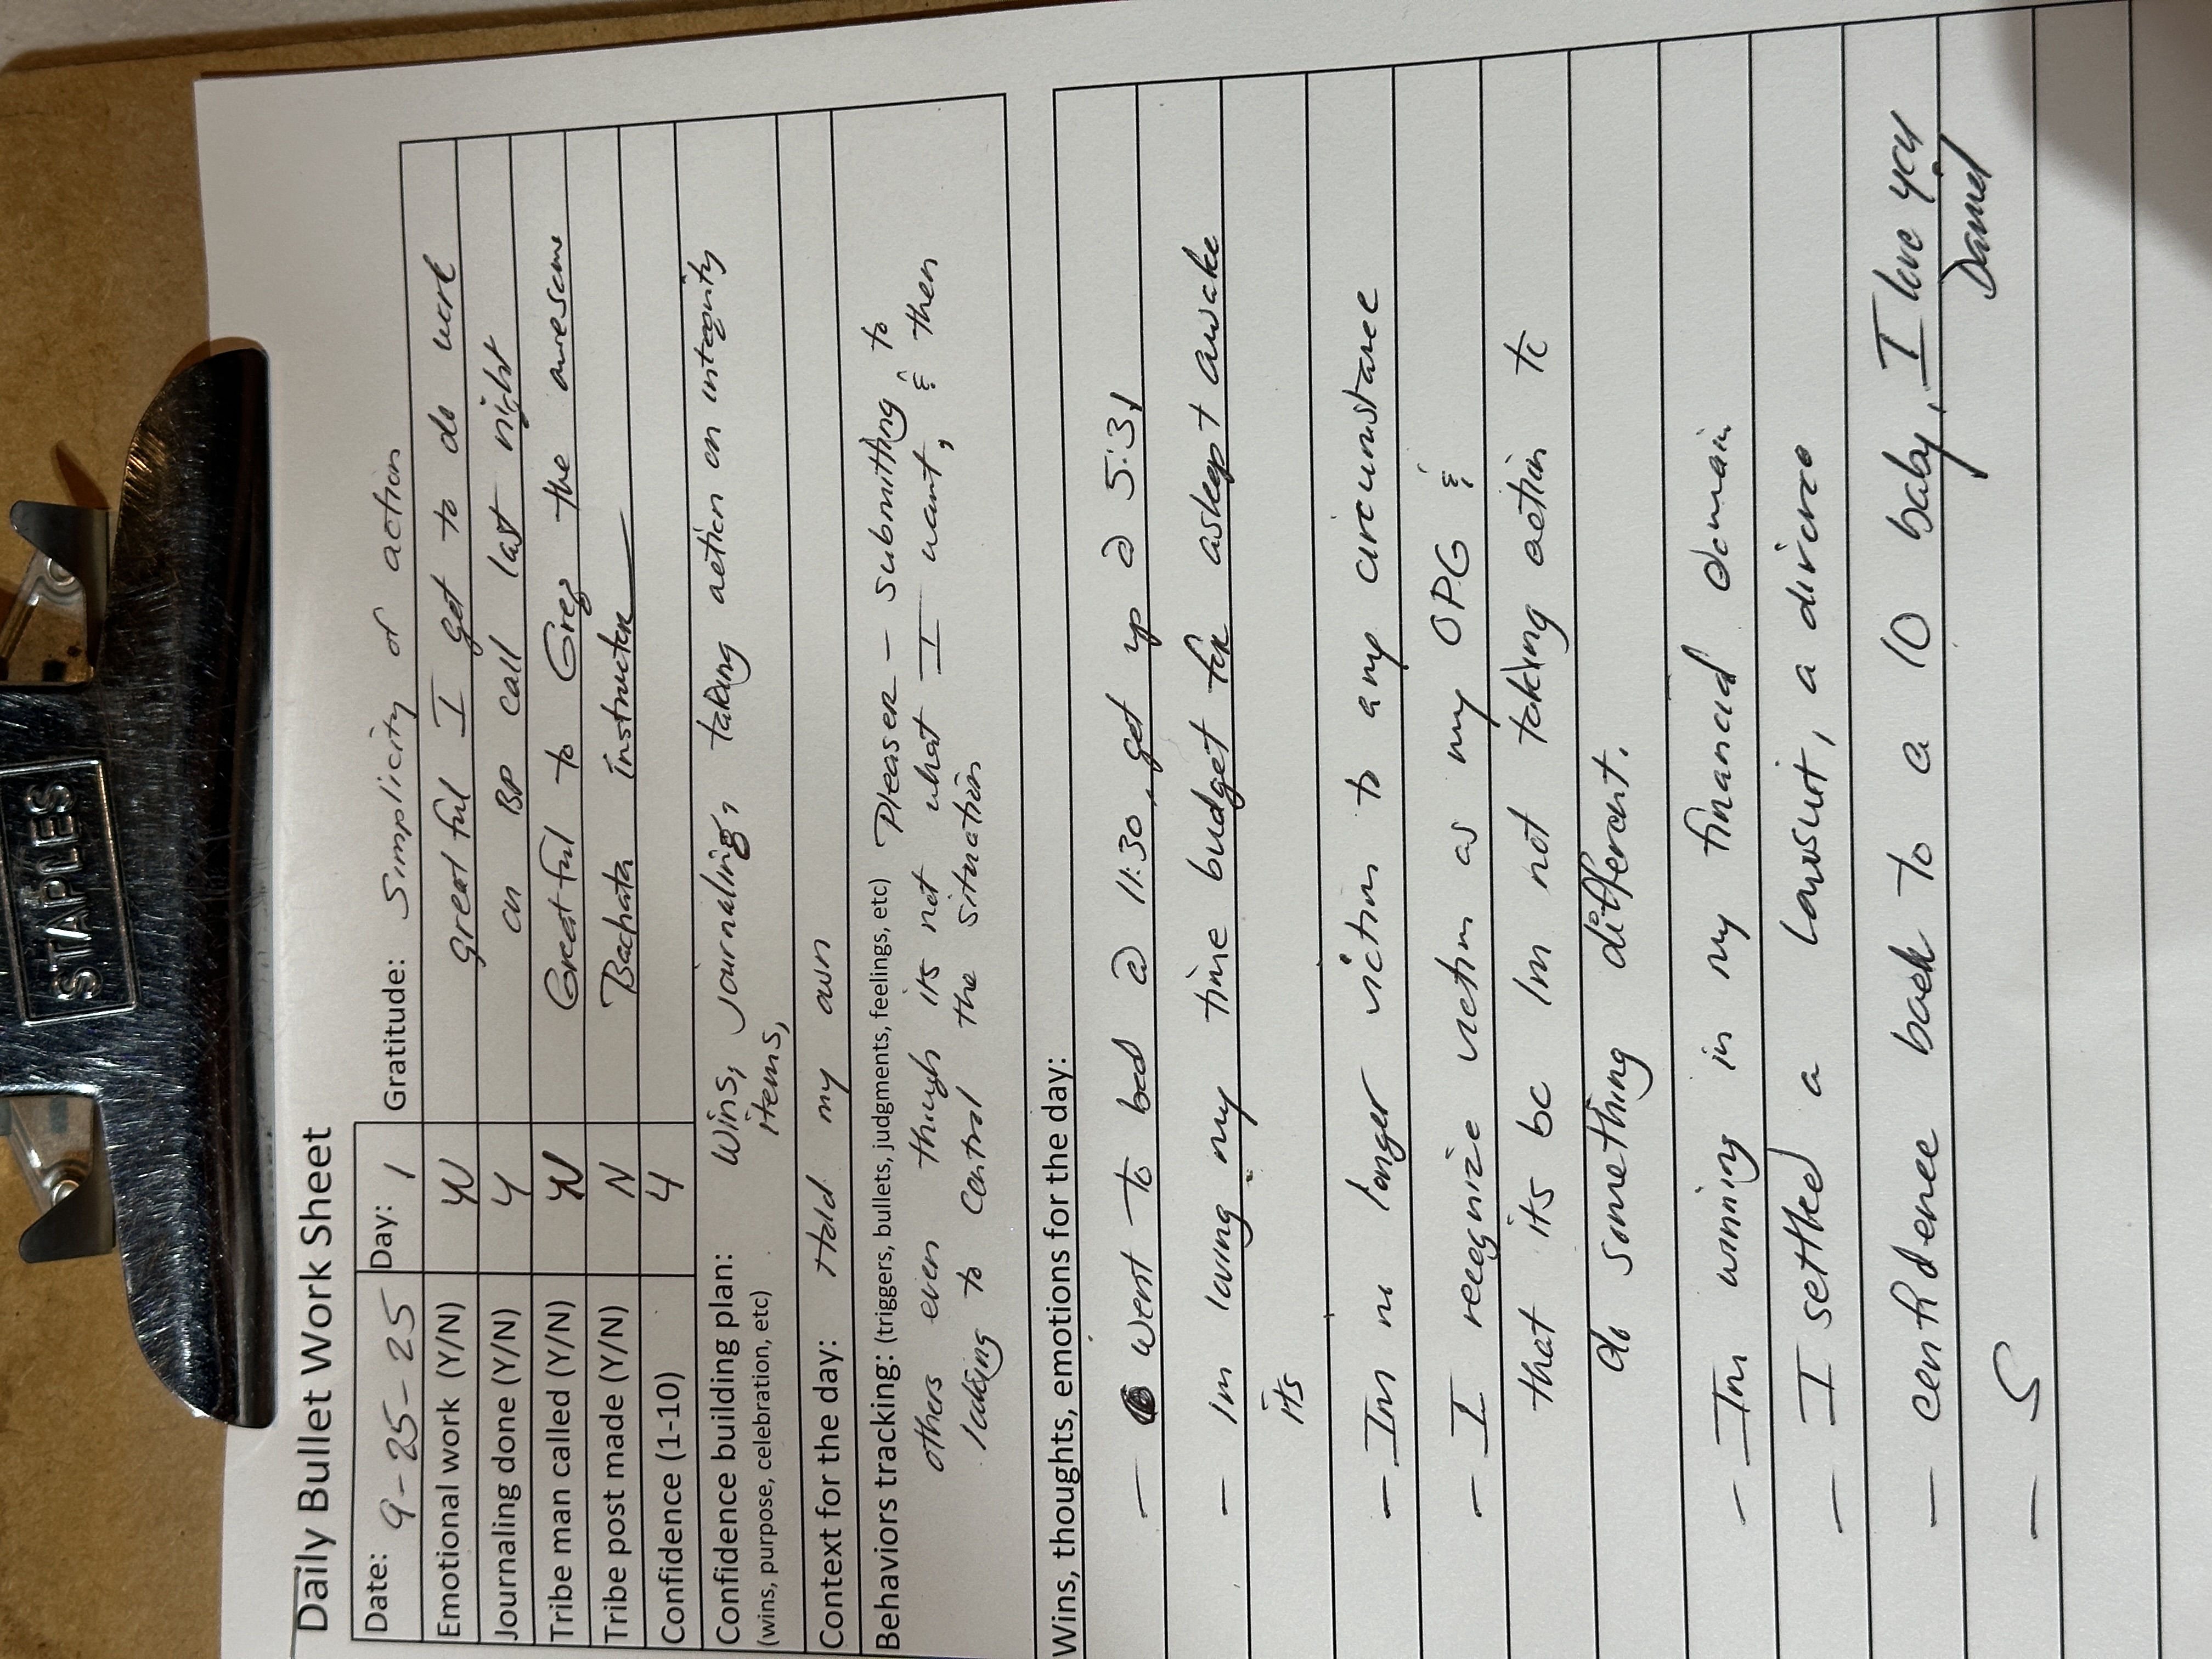 STAPLES
Daily Bullet Work Sheet
Date: 9-25-25 Day: 1 Gratitude: Simplicity of action
Emotional work (Y/N) greatful I get to do work
Journaling done (Y/N) Y on BP call last night
Tribe man called (Y/N) Greatful to Greg the awesome
Tribe post made (Y/N) N Bachata instructor
Confidence (1-10) 4
Confidence building plan: Wins, journaling, taking action on integrity
(wins, purpose, celebration, etc) items,
Context for the day: Hold my own
Behaviors tracking: (triggers, bullets, judgments, feelings, etc) Pleaser - submitting to
others even though its not what I want, & then
looking to control the situation
Wins, thoughts, emotions for the day:
- went to bed @ 11:30, get up @ 5:31
- Im loving my time budget for asleep + awake
its
- Im no longer victim to any circumstance
- I recognize victim as my OPG &
that its bc Im not taking action to
do something different.
- Im winning in my financial domain
- I settled a lawsuit, a divorce
- confidence back to a 10 baby, I love you
Daniel
- S